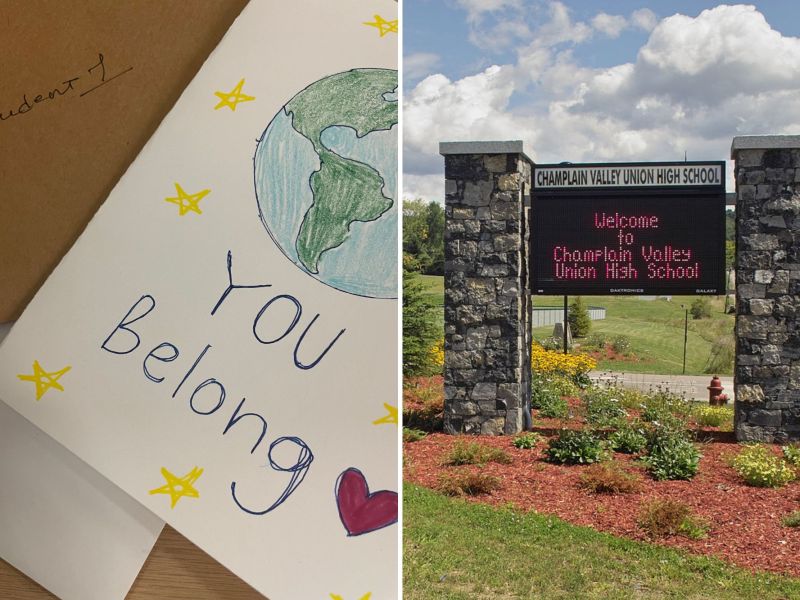 1
YOU
Belong
CHAMPLAIN VALLEY UNION HIGH SCHOOL
Welcome
to
Champlain Valley
Union High School
DAKTRONICS GALAXY